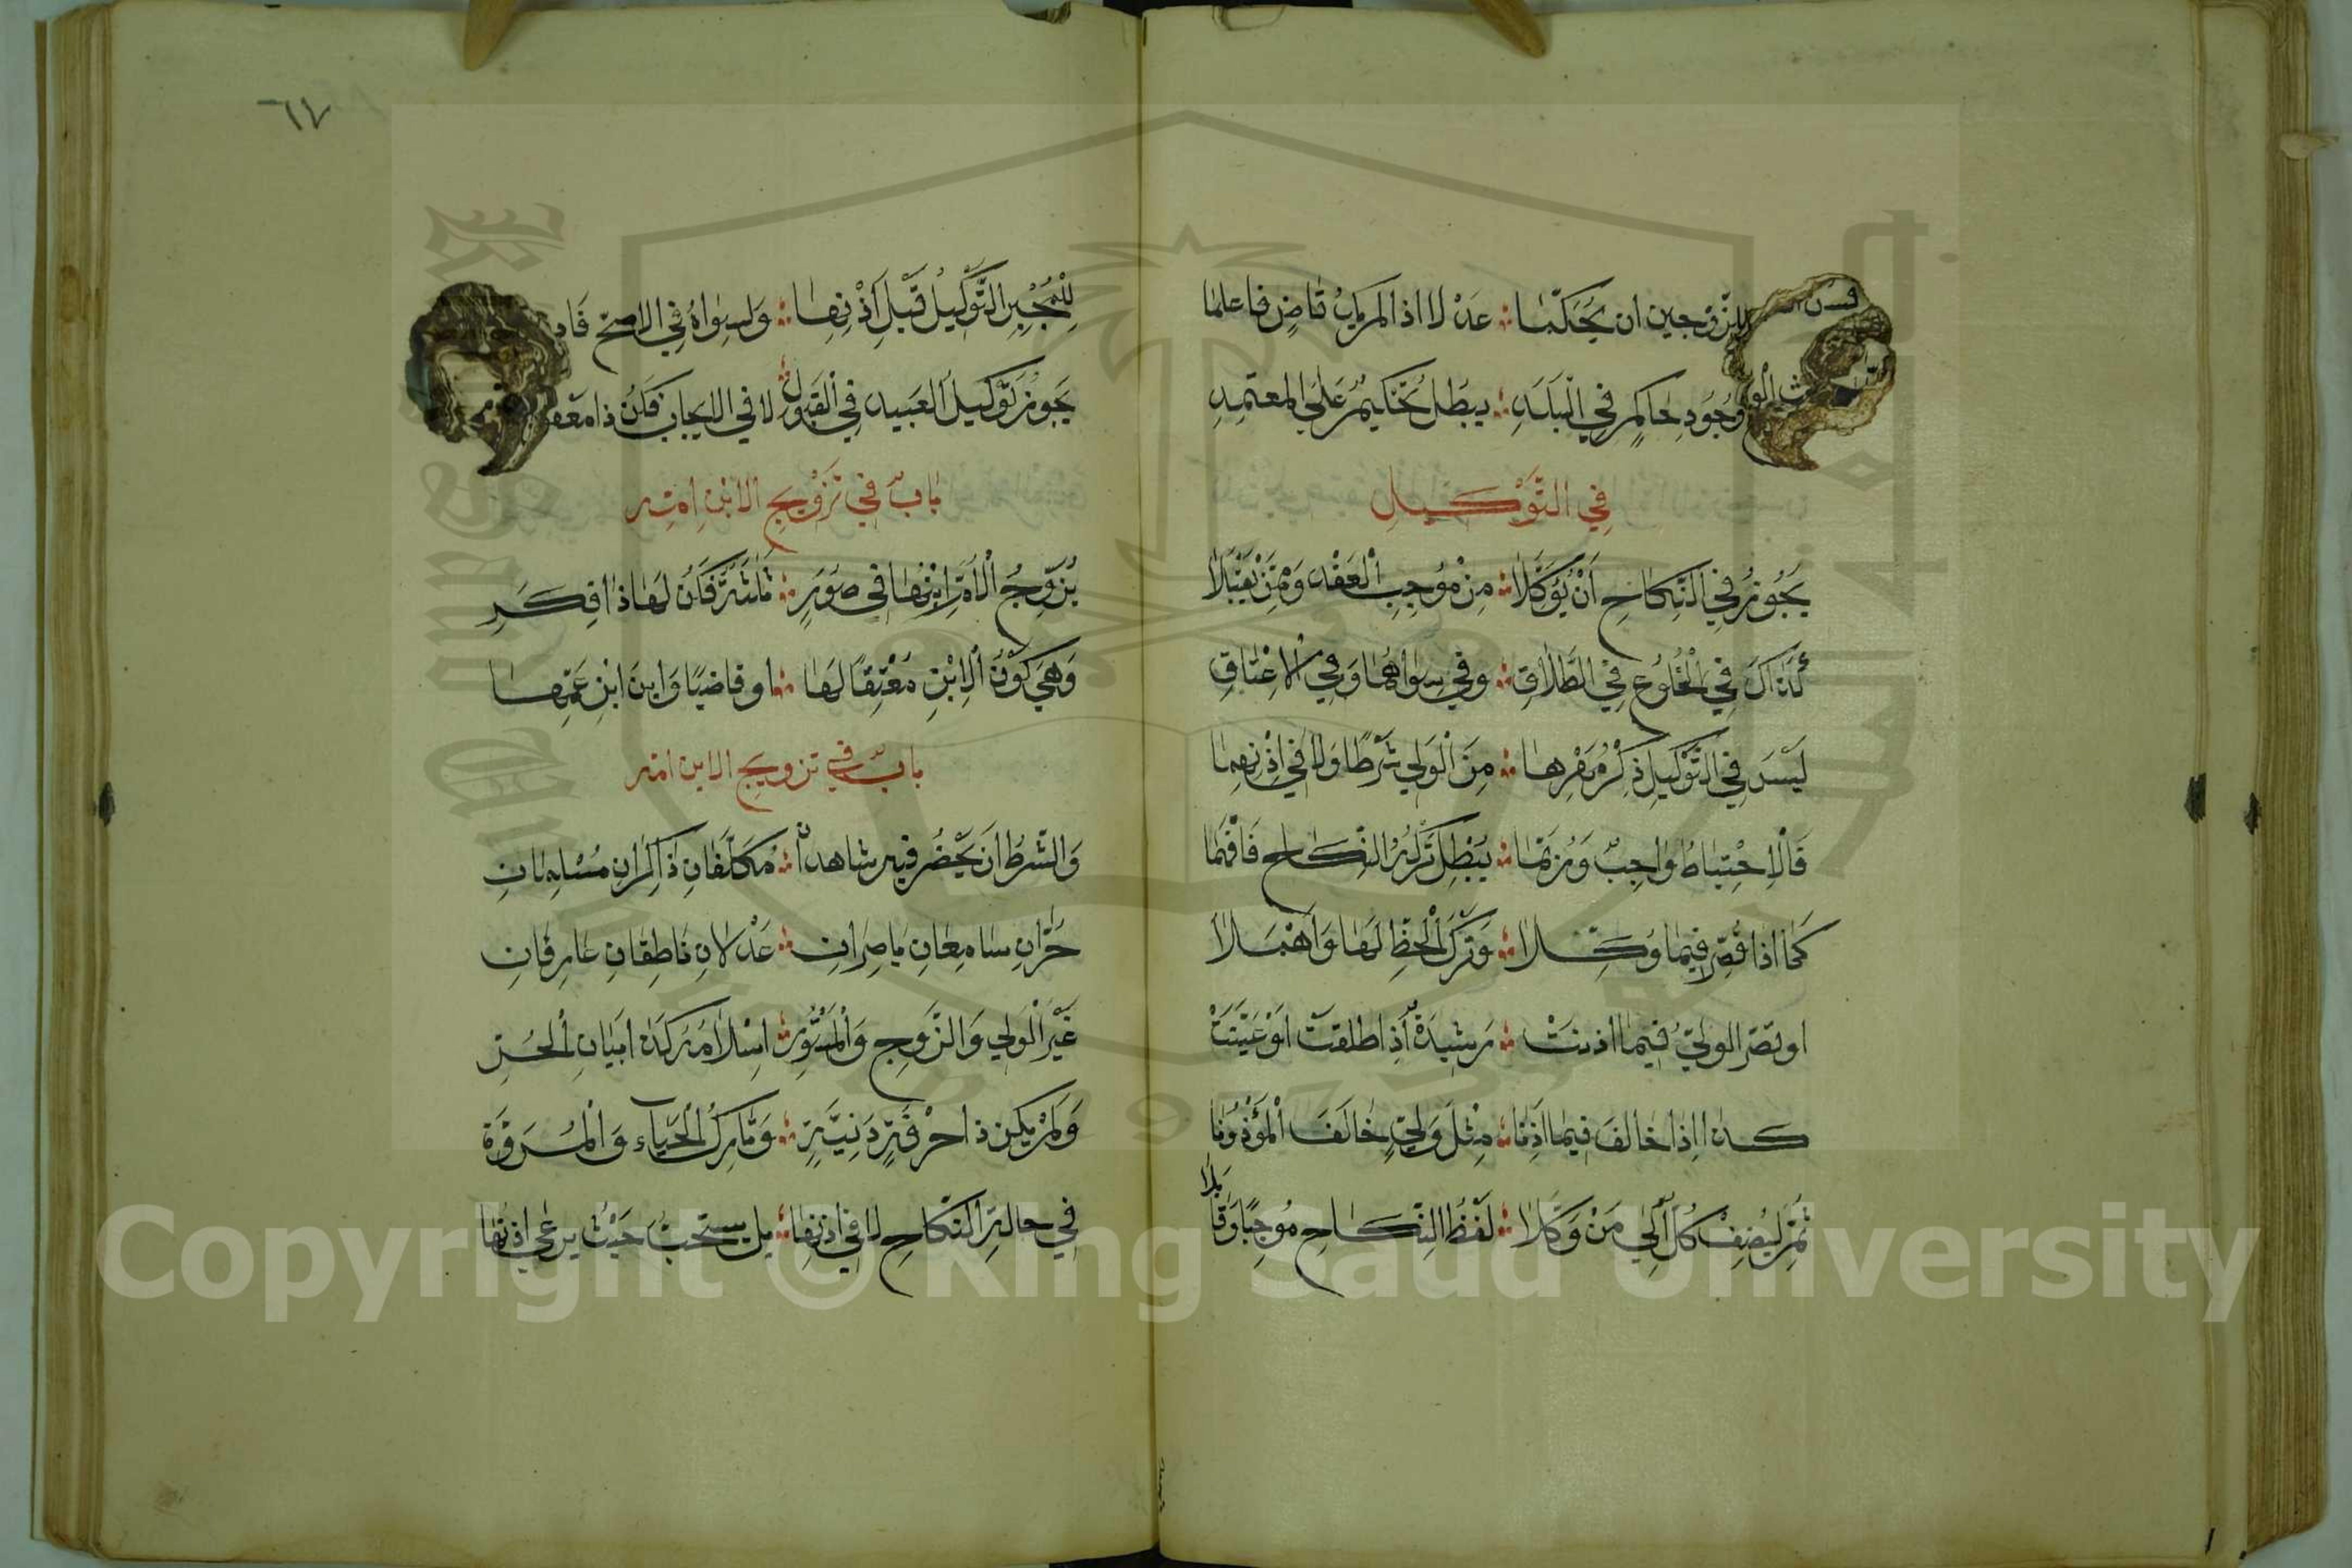 للزوجين ان يحكما ؞ عدلا اذا لم يك قاض فاعلما
وجود حاكم في البلد ؞ يبطل تحكيم على المعتمد
في التوكيل
يَجُوزُ في النكاح أنْ يُوكِّلا ؞ مِنْ مُوجِبِ العَقْد وَمِمَّنْ يَقْبَلا
كَذاكَ في الخُلوع في الطَّلاقِ ؞ وفي سِواهُما وَفي الاعْتاقِ
لَيْسَ في التَّوْكيلِ ذِكْرُ مَهْرِها ؞ مِنَ الْوَلي شَرْطًا وَلا في اذْنِهما
فَالاحْتياطُ واجِبٌ وَرُبَّما ؞ يُبْطِل تَرْكُ النِّكاح فَافْهَما
كَما اذا قصّر فيما وُكِّلا ؞ وَتَرَكَ الْحَظِّ لَها وَاهْمَلا
او قصّر الوليّ فيما اذنت ؞ رشيدة أذا طلقت اوْ عَيَّنَتْ
كذا إذا خالفَ فيما اذِنا ؞ مِثْلَ وَليّ خالَفَ الْمؤْذُونا
ثم ليُضِفْ كُلّ الى مَنْ وَكّلا ؞ لَفْظُ النِّكاحِ مُوجِبًا وَقابلا
٦٧
للمُجْبِرِ التَّوكيلُ قَبْلَ اذْنِها ؞ وَلسِواهُ في الاصحّ
يَجوزُ تَوْكيلُ العَبيد في الْقَبول ؞ لا في الايجاب فكن ذا
بابٌ في تَزْويج الابْنِ امّه
يُزَوِّجُ الأمَّ ابْنُها في صُوَرِ ؞ ثلثة فكُن لها ذا فِكَرِ
وَهيَ كَوْنُ الابْنِ مُعْتِقًا لَها ؞ او قاضيًا وَابنَ ابْنِ عَمِّها
بابٌ في تزويج الابن امّه
وَالشّرطُ انْ يَحْضُر فيه شاهدانِ ؞ مُكَلّفانِ ذاكِرانِ مُسْلِمانِ
حُرّانِ سامِعانِ باصِرانِ ؞ عَدْلانِ ناطِقانِ عارِفانِ
غَيْرَ الْوَلي وَالزّوجِ وَالْمَسْتُورِ ؞ اسْلامُهُ كَذا ابَيانِ الحُرِ
وَلمْ يكن ذا حرْفَةٍ دَنِيَّةٍ ؞ وَتارِكُ الْحَياءِ وَالْمُرَوّة
في حالةِ النّكاحِ لا في اذنِها ؞ بل يستحبّ حَيْثُ يرعى اذنها
Copyright © King Saud University